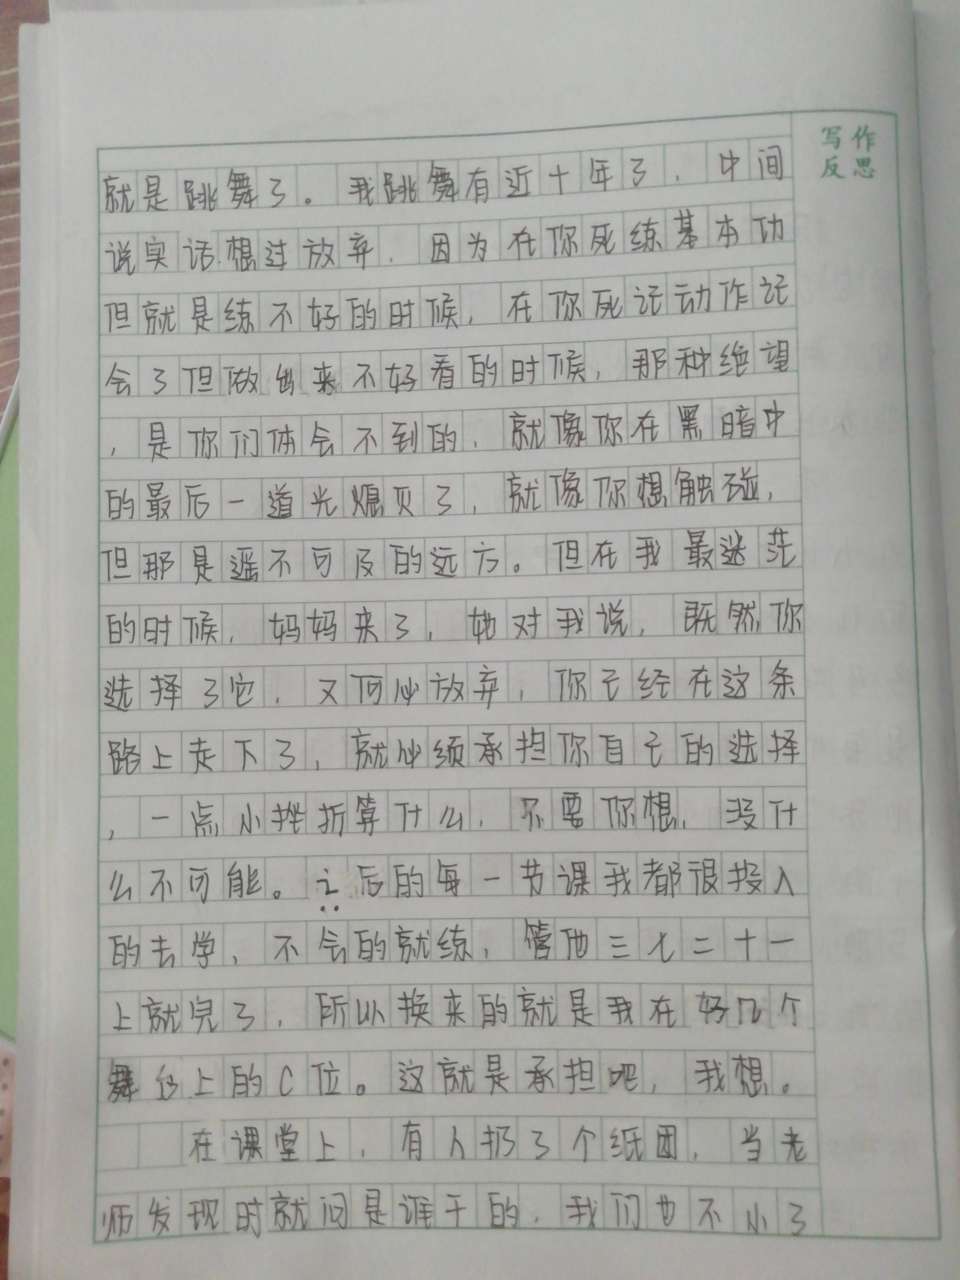 写作
反思
就是跳舞了。我跳舞有近十年了，中间
说实话想过放弃，因为在你死练基本功
但就是练不好的时候，在你死记动作记
会了但做出来不好看的时候，那种绝望
，是你们体会不到的，就像你在黑暗中
的最后一道光熄灭了，就像你想触碰，
但那是遥不可及的远方。但在我最迷茫
的时候，妈妈来了，她对我说，既然你
选择了它，又何必放弃，你已经在这条
路上走下了，就必须承担你自己的选择
，一点小挫折算什么，只要你想，没什
么不可能。之后的每一节课我都很投入
的去学，不会的就练，管他三七二十一
上就完了，所以换来的就是我在好几个
舞台上的C位。这就是承担吧，我想。
在课堂上，有人扔了个纸团，当老
师发现时就问是谁干的，我们也不小了